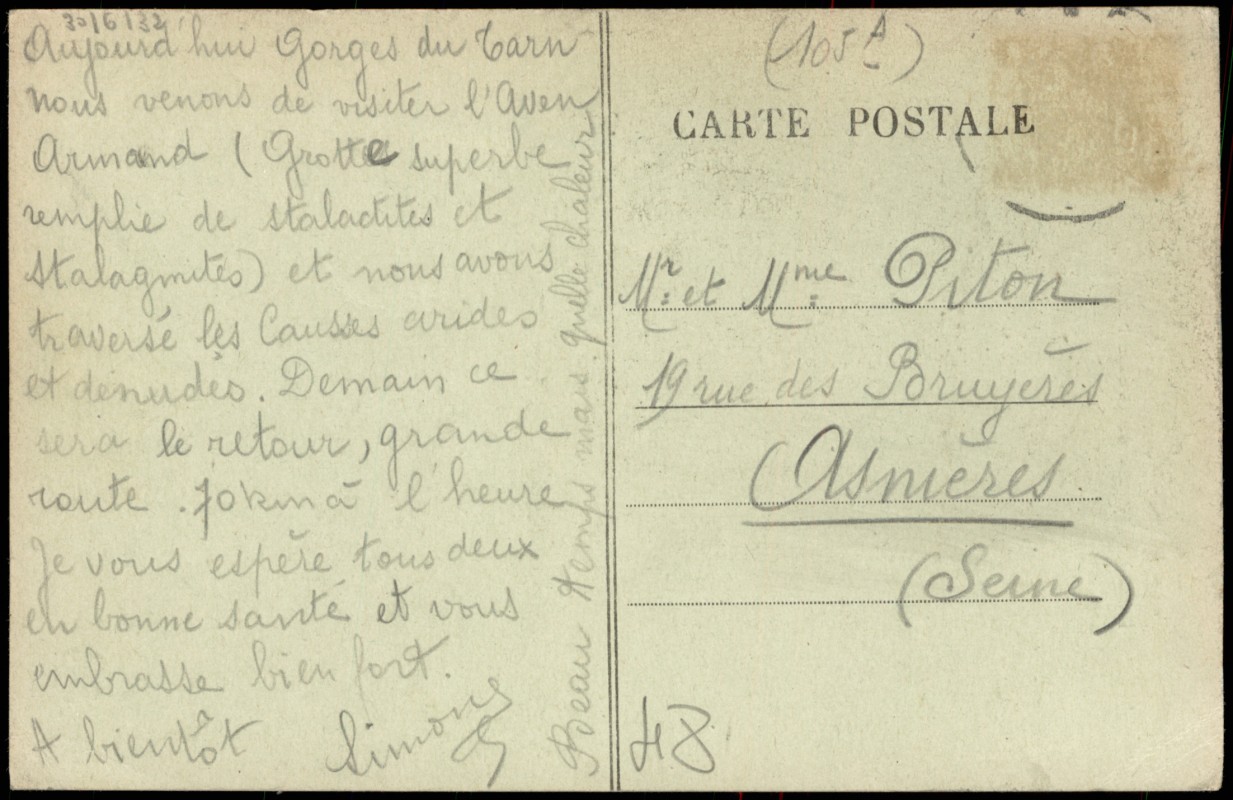 30/6/32
Aujourd'hui Gorges du Tarn
nous venons de visiter l'Aven
Armand (Grotte superbe
remplie de stalactites et
stalagmites) et nous avons
traversé les Causses arides
et dénudés. Demain ce
sera le retour, grande
route. 70km à l'heure
Je vous espère tous deux
en bonne santé et vous
embrasse bien fort.
A bientôt Simone
Beau temps mais quelle chaleur
(105 A)
CARTE POSTALE
Mr et Mme Piton
19 rue des Bruyères
Asnières
(Seine)
48